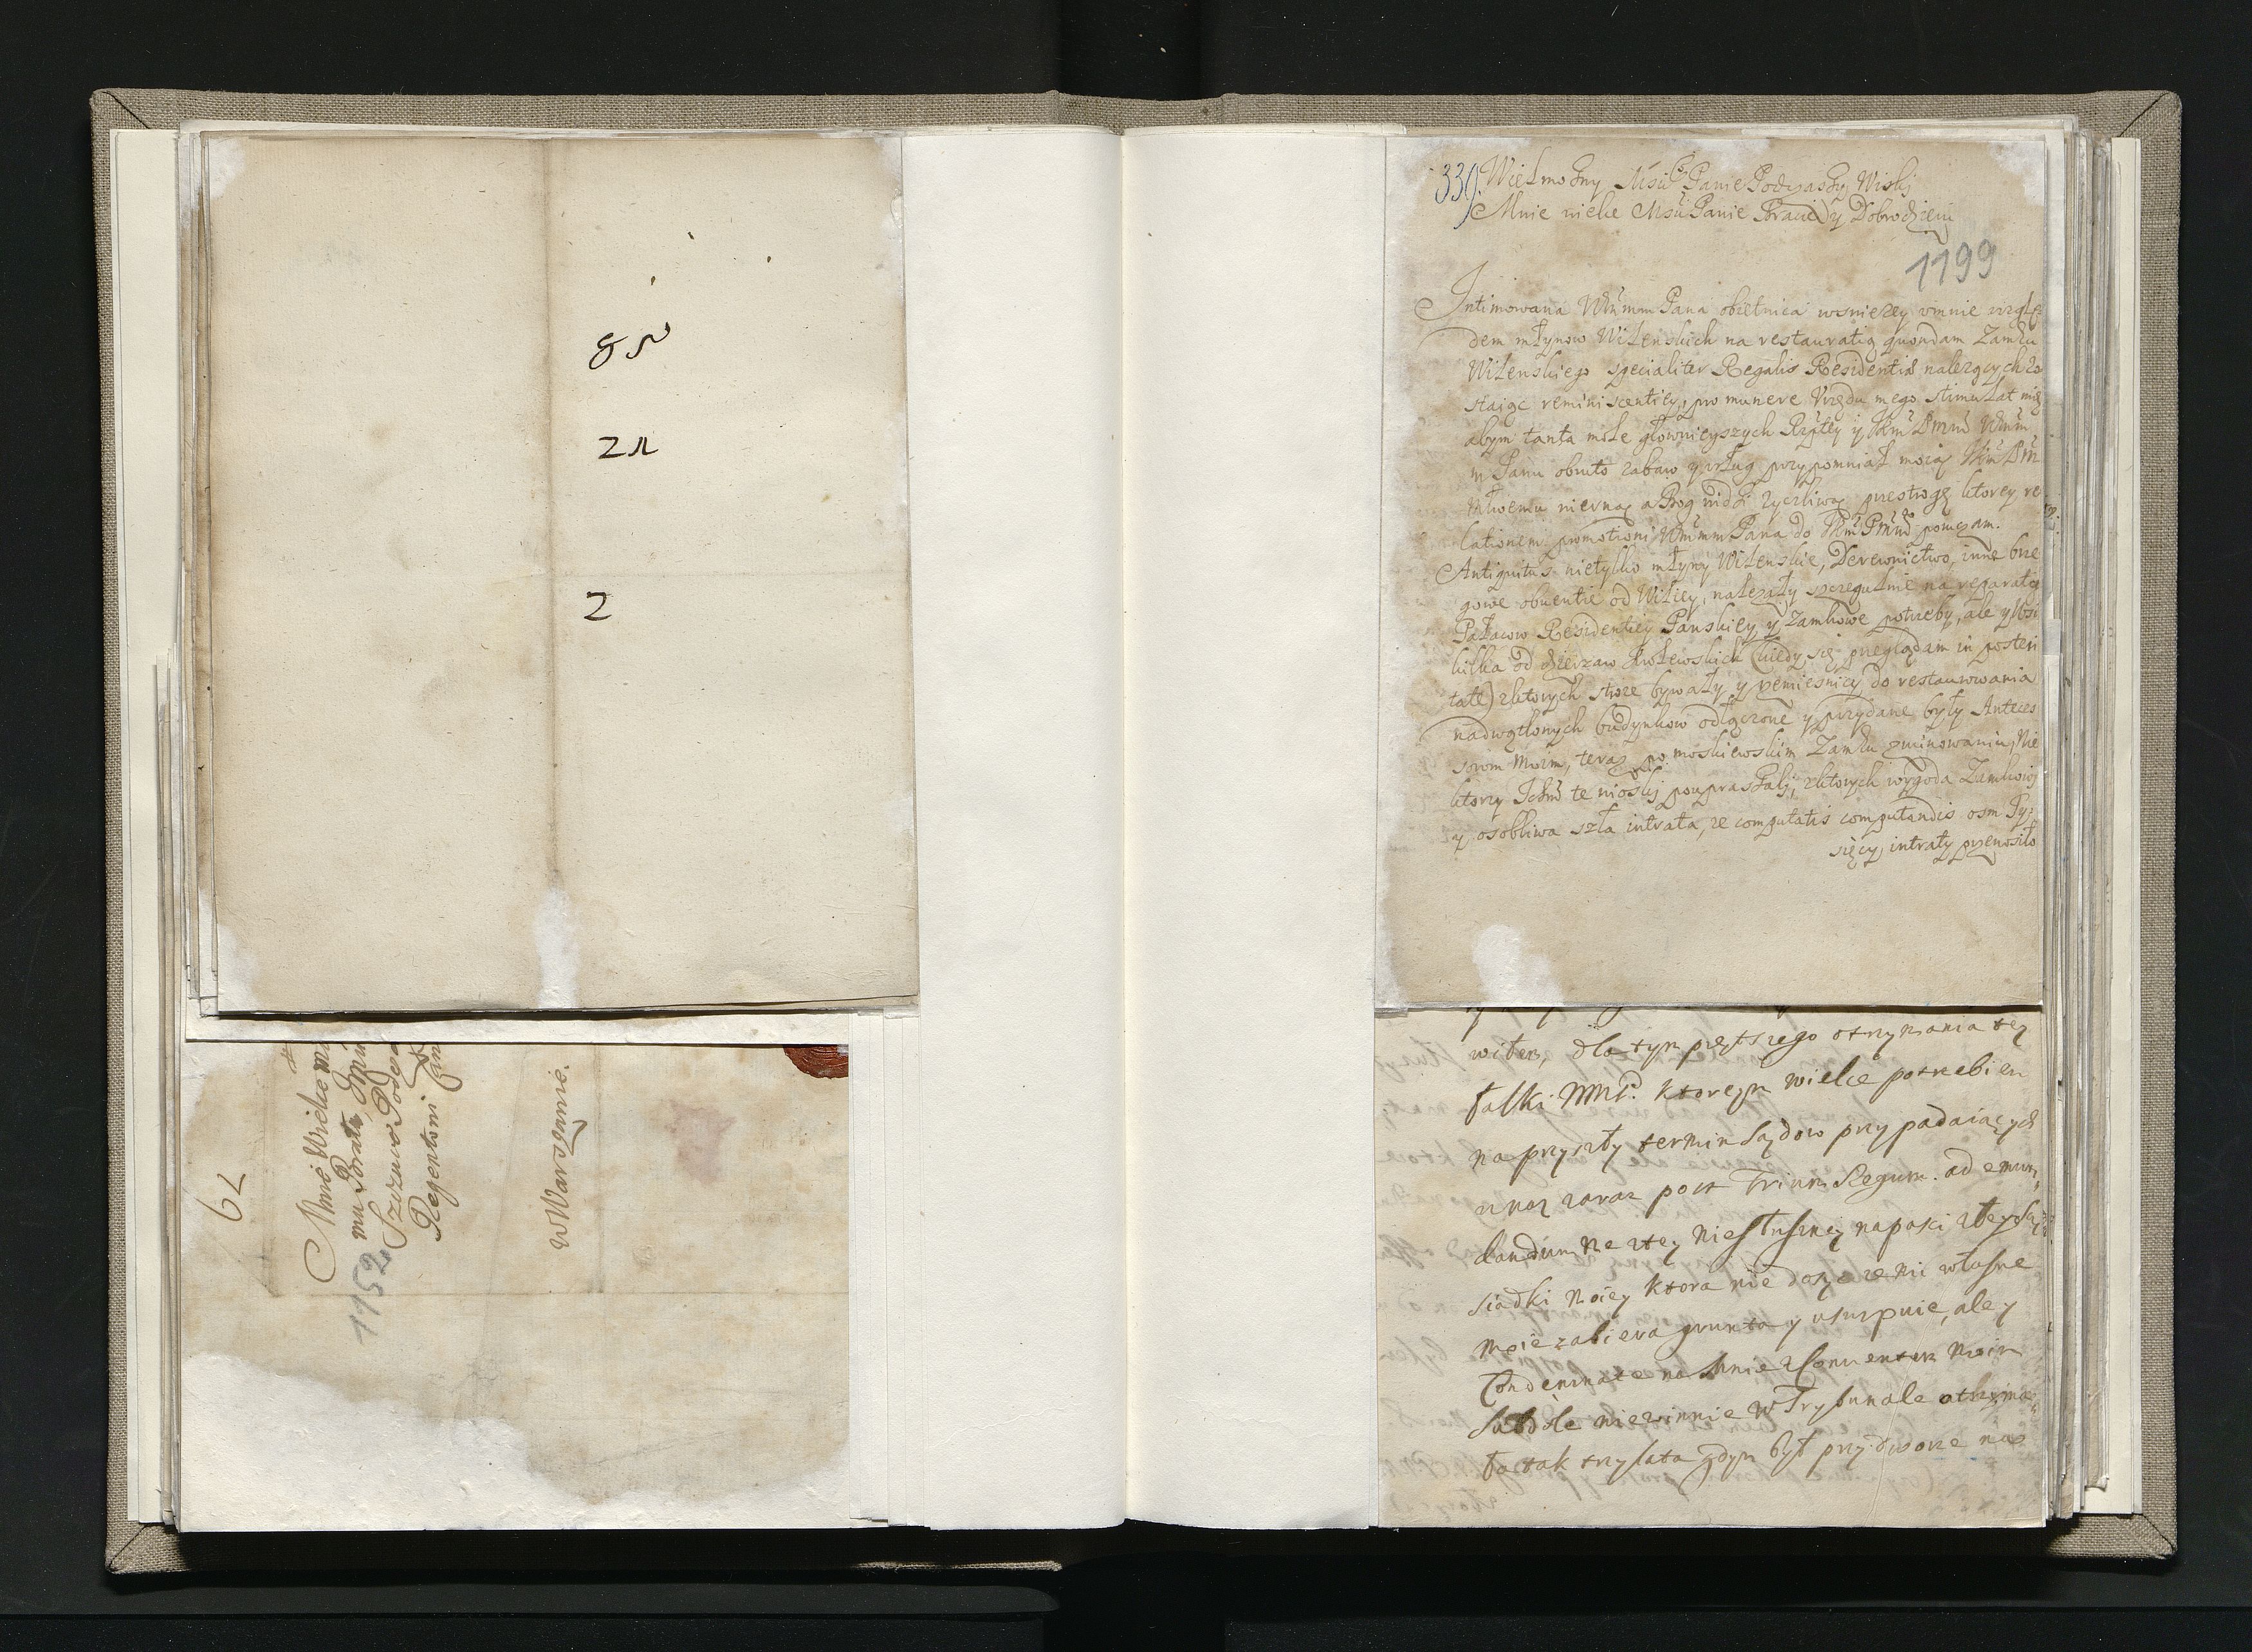 85
21
2
62
Mnie Wielce
mu Bratu
1152
Regentowi
w Warszawie.
339.
Wielmozny Msci Panie Podczaszy Wislij
Mnie wielce Msci Panie Bracie y Dobrodzieiu
1199
Intimowana Pana obietnica wsnieżey vmnie wzglę
dem młynow Wilenskich na restauratią quondam Zamku
Wilenskiego specialiter Regalis Residentiæ należących zo
staiąc reminiscentiey, pro munere Vrzędu mego stimulat mię
abym tanta mole głownieyszych Rzptey y
m Panu obruto zabaw y vsług przypomniał moią
wiernaą a Bog widzi życzliwą przestrogę ktorey re
lationem promotioni Pana do poruczam.
Antiquitus nietylko młyny Wilenskie, Derewnictwo, inne brze
gowe obuentie od Wiliey, należały szczegulnie na reparatią
Pałacow Residentiey Panskiey y Zamkowe potrzeby, ale y Wsi
kilka od dzierzaw Krolewskich (kiedy się przeglądam in posteri
tate) z ktorych stroze bywały y remiesnicy do restaurowania
nadwątlonych budynkow odłączone y przydane były Anteces
sorom Moim, teraz po moskiewskim Zamku zruinowaniu, Nie
ktorzy Ichmc te wioski poupraszali, z ktorych wygoda Zamkowi
y osobliwa szła intrata, ze computatis computandis osm Ty:
sięcy intraty przenosiło
dla tym prętszego otrzymania tey
łaski WMP. ktoreym wielce potrzebien
na przyszły termin sądow przypadaiących
zaraz post Trium Regum. ad emun„
dandum me z tey niesłuszney napasci złey Są„
siadki moiey ktora nie dosyc ze mi własne
moie zabiera grunta y usurpuie, ale y
Condemnate na mnie z Conuentem moim
subdole niewinnie w Trybunale otrzyma„
ła tak trzy lata gdym był przy dworze na